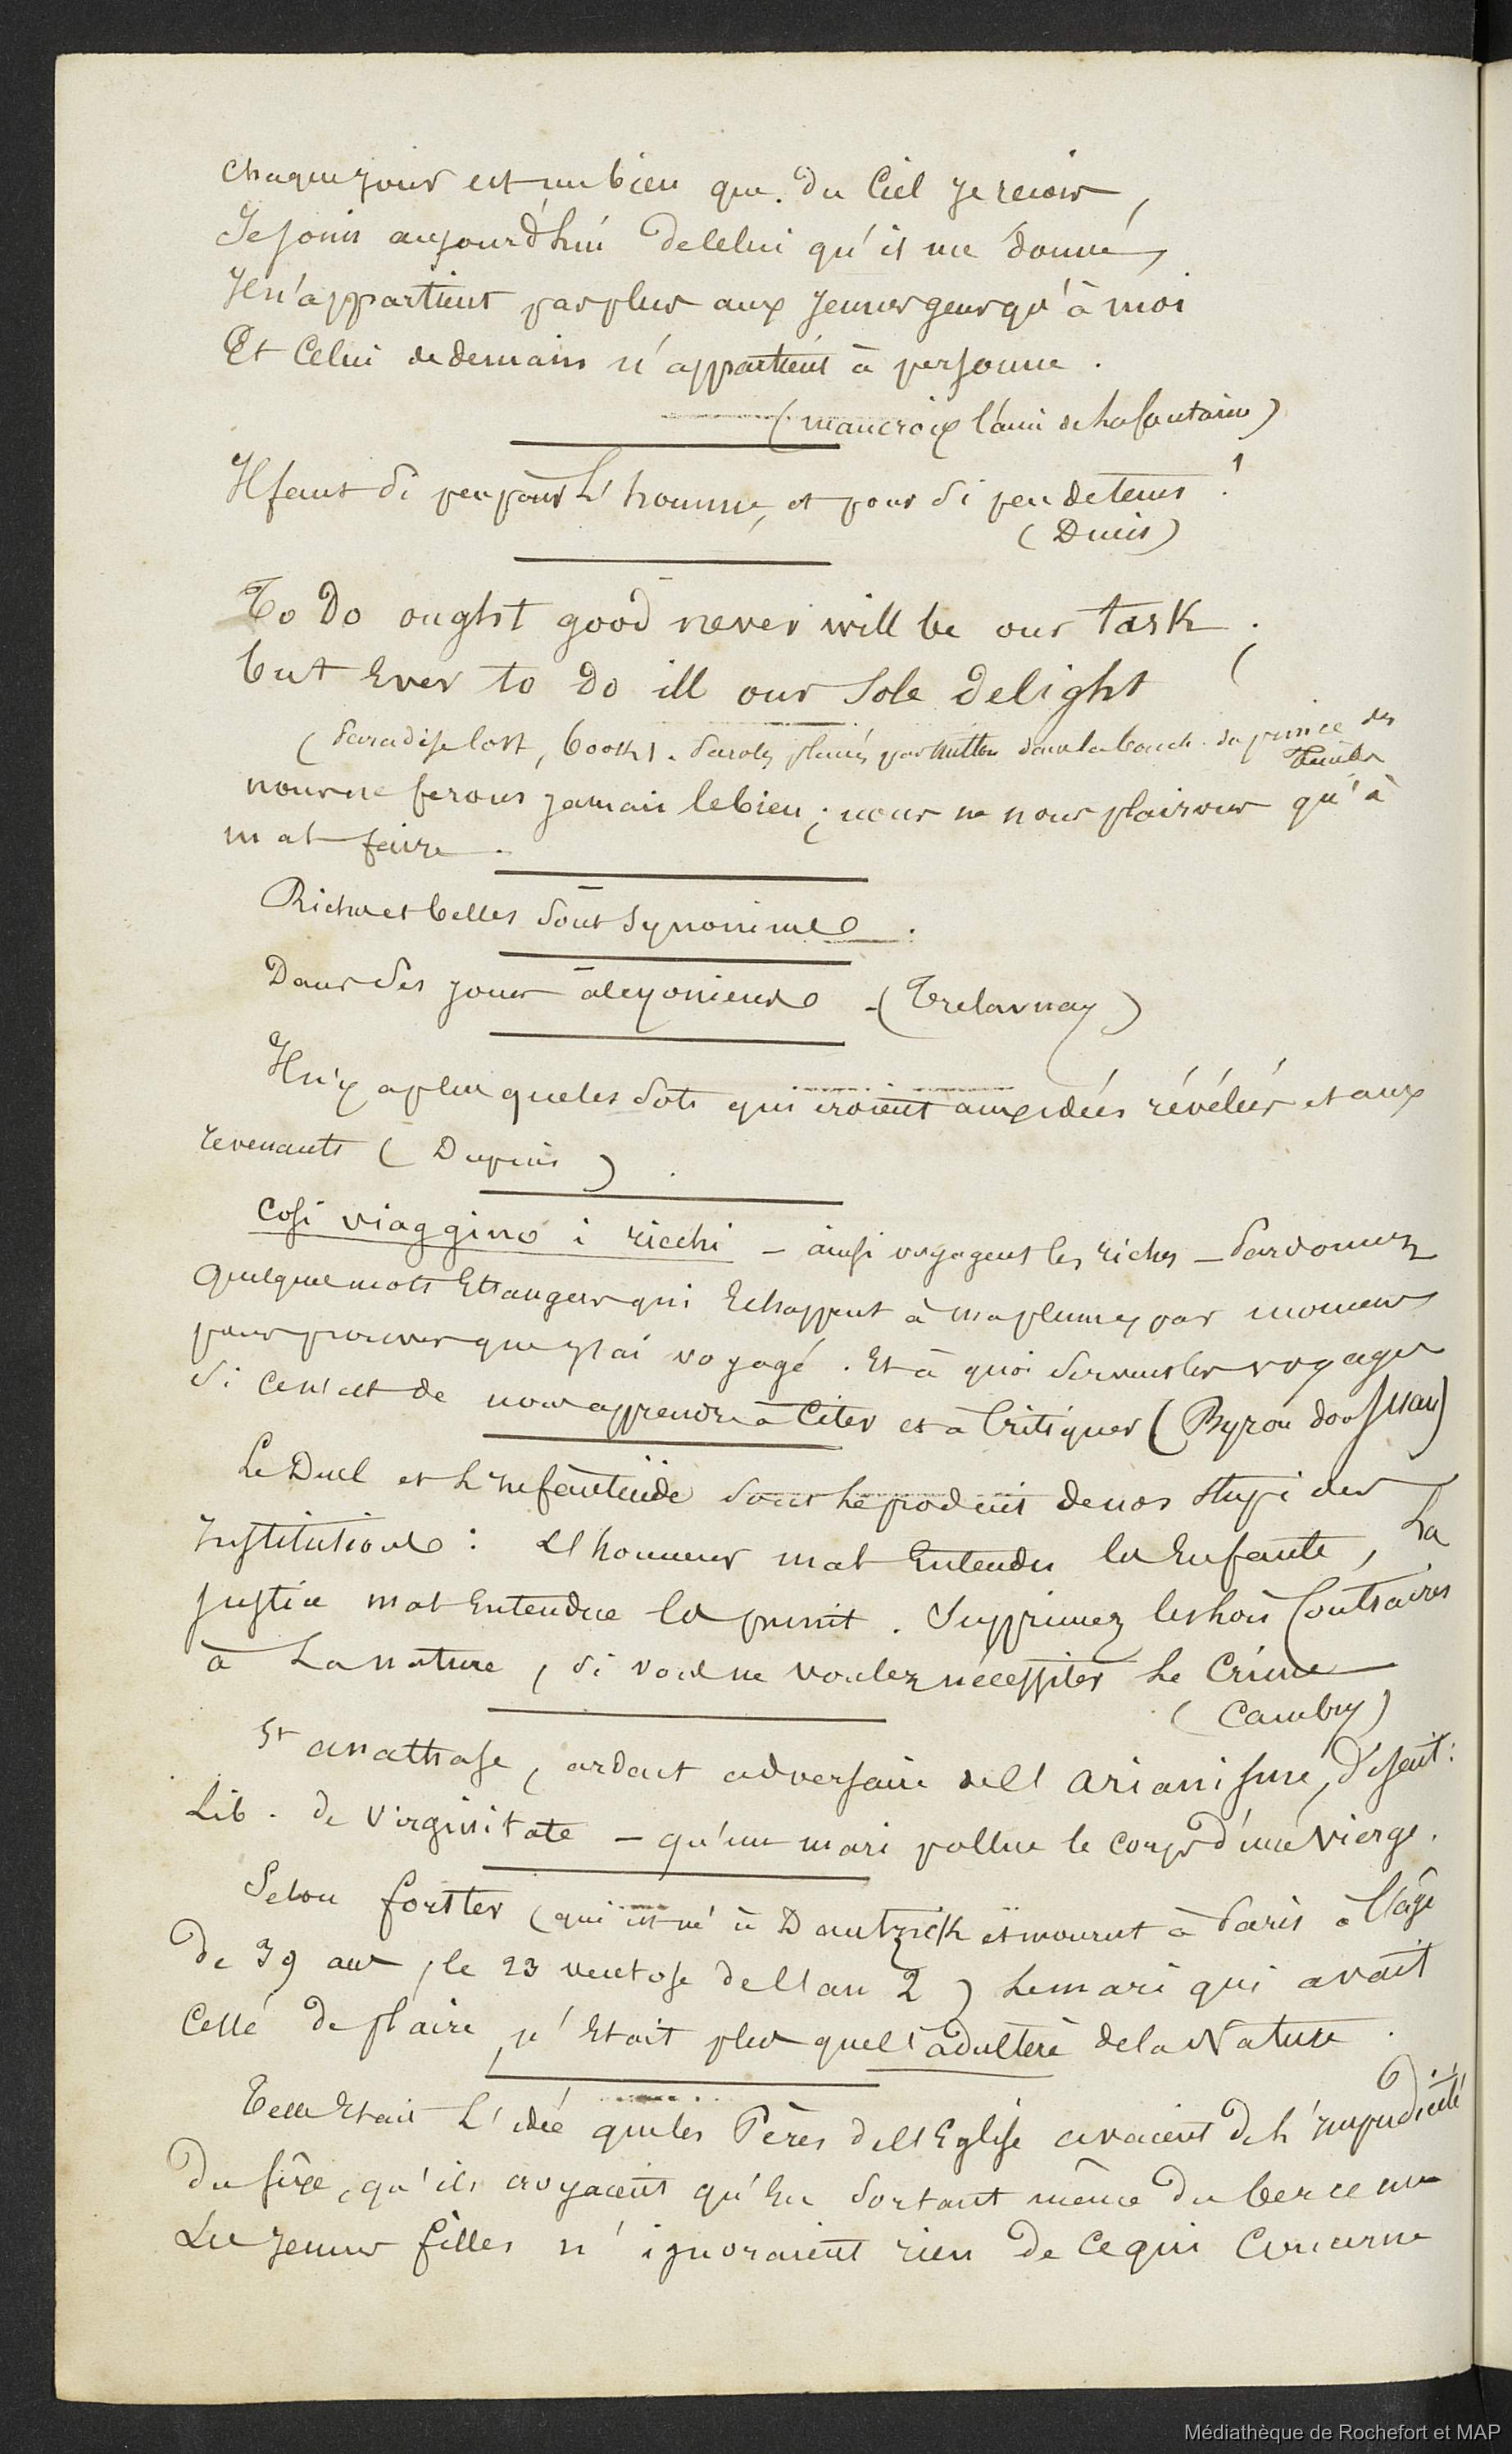 Chaque jour est un bien que du Ciel je reçois,
Je jouis aujourd'hui de celui qu'il me donne,
Il n'appartient pas plus aux jeunes gens qu'à moi
Et Celui de demain n'appartient à personne.
(maucroix l'ami de Lafontaine)
Il faut si peu pour L'homme, et pour si peu de tems!
(Ducis)
To Do ought good never will be our task;
but Ever to Do ill our Sole Delight
(Paradise lost, book 1. Paroles placées par Milton dans la bouche du prince des
nous ne ferons jamais le bien; nous ne nous plairons qu'à
mal faire.
Riches et belles sont synonimes.
Dans ses jours alcyoniens - (Trelawnay)
Il n'y a plus que les sots qui croient aux idées révélées et aux
revenants (Dupuis).
Cosi viaggino i ricchi - ainsi voyagent les riches - Pardonnez
quelques mots Etrangers qui Echappent à ma plume, par momens
pour prouver que j'ai voyagé. Et à quoi servent les voyages
si ce n'est de nous apprendre à Citer et à Critiquer (Byron don Juan)
Le Duel et L'infanticide sont le produit de nos stupides
institutions: L'honneur mal Entendu les Enfante, La
justice mal Entendue les punit. Supprimez les lois Contraires
à La nature, si vous ne voulez nécessiter Le Crime
(Cambry)
St anathase, ardent adversaire de l'arianisme, disait:
Lib. de Virginitate - qu'un mari pollue le corps d'une Vierge.
Selon forster (qui est né à Dantzick et mourut à Paris à l'âge
de 39 ans, le 23 ventose de l'an 2) Le mari qui avait
Cessé de plaire, n'Etait plus que l'adultère de la Nature.
Telle Etait L'idée que les Pères de l'Eglise avaient de L'impudicité
du sexe, qu'ils croyaient qu'En sortant même du berceau
Les jeunes filles n'ignoraient rien de ce qui Concerne
Médiathèque de Rochefort et MAP